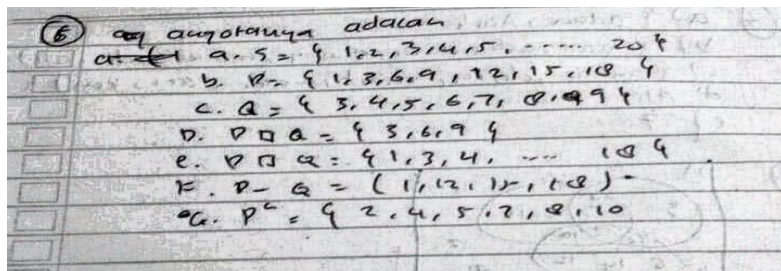 6 anggotanya adalah
a. S = { 1,2,3,4,5, ..... 20 }
b. P = { 1,3,6,9,12,15,18 }
c. Q = { 3,4,5,6,7,8,9 }
D. P ∩ Q = { 3,6,9 }
e. P ∩ Q = { 1,3,4, .... 18 }
F. P - Q = ( 1,12,15,18 )
G. Pᶜ = { 2,4,5,7,8,10